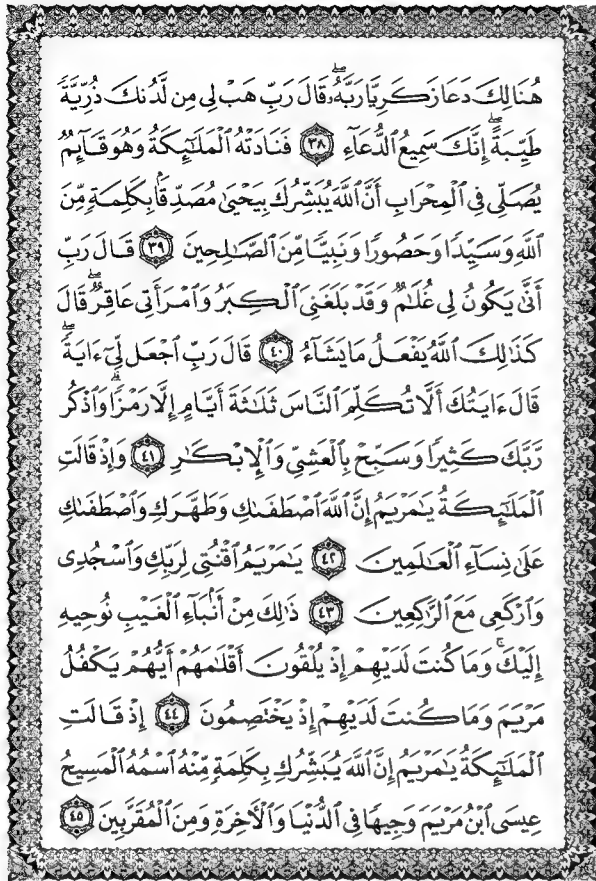 هُنَالِكَ دَعَا زَكَرِيَّا رَبَّهُۥۖ قَالَ رَبِّ هَبْ لِى مِن لَّدُنكَ ذُرِّيَّةً
طَيِّبَةًۖ إِنَّكَ سَمِيعُ ٱلدُّعَآءِ ٣٨ فَنَادَتْهُ ٱلْمَلَٰٓئِكَةُ وَهُوَ قَآئِمٌ
يُصَلِّى فِى ٱلْمِحْرَابِ أَنَّ ٱللَّهَ يُبَشِّرُكَ بِيَحْيَىٰ مُصَدِّقًۢا بِكَلِمَةٍ مِّنَ
ٱللَّهِ وَسَيِّدًا وَحَصُورًا وَنَبِيًّا مِّنَ ٱلصَّٰلِحِينَ ٣٩ قَالَ رَبِّ
أَنَّىٰ يَكُونُ لِى غُلَٰمٌ وَقَدْ بَلَغَنِىَ ٱلْكِبَرُ وَٱمْرَأَتِى عَاقِرٌۖ قَالَ
كَذَٰلِكَ ٱللَّهُ يَفْعَلُ مَا يَشَآءُ ٤٠ قَالَ رَبِّ ٱجْعَل لِّىٓ ءَايَةًۖ
قَالَ ءَايَتُكَ أَلَّا تُكَلِّمَ ٱلنَّاسَ ثَلَٰثَةَ أَيَّامٍ إِلَّا رَمْزًاۗ وَٱذْكُر
رَّبَّكَ كَثِيرًا وَسَبِّحْ بِٱلْعَشِىِّ وَٱلْإِبْكَٰرِ ٤١ وَإِذْ قَالَتِ
ٱلْمَلَٰٓئِكَةُ يَٰمَرْيَمُ إِنَّ ٱللَّهَ ٱصْطَفَىٰكِ وَطَهَّرَكِ وَٱصْطَفَىٰكِ
عَلَىٰ نِسَآءِ ٱلْعَٰلَمِينَ ٤٢ يَٰمَرْيَمُ ٱقْنُتِى لِرَبِّكِ وَٱسْجُدِى
وَٱرْكَعِى مَعَ ٱلرَّٰكِعِينَ ٤٣ ذَٰلِكَ مِنْ أَنۢبَآءِ ٱلْغَيْبِ نُوحِيهِ
إِلَيْكَۚ وَمَا كُنتَ لَدَيْهِمْ إِذْ يُلْقُونَ أَقْلَٰمَهُمْ أَيُّهُمْ يَكْفُلُ
مَرْيَمَ وَمَا كُنتَ لَدَيْهِمْ إِذْ يَخْتَصِمُونَ ٤٤ إِذْ قَالَتِ
ٱلْمَلَٰٓئِكَةُ يَٰمَرْيَمُ إِنَّ ٱللَّهَ يُبَشِّرُكِ بِكَلِمَةٍ مِّنْهُ ٱسْمُهُ ٱلْمَسِيحُ
عِيسَى ٱبْنُ مَرْيَمَ وَجِيهًا فِى ٱلدُّنْيَا وَٱلْءَاخِرَةِ وَمِنَ ٱلْمُقَرَّبِينَ ٤٥